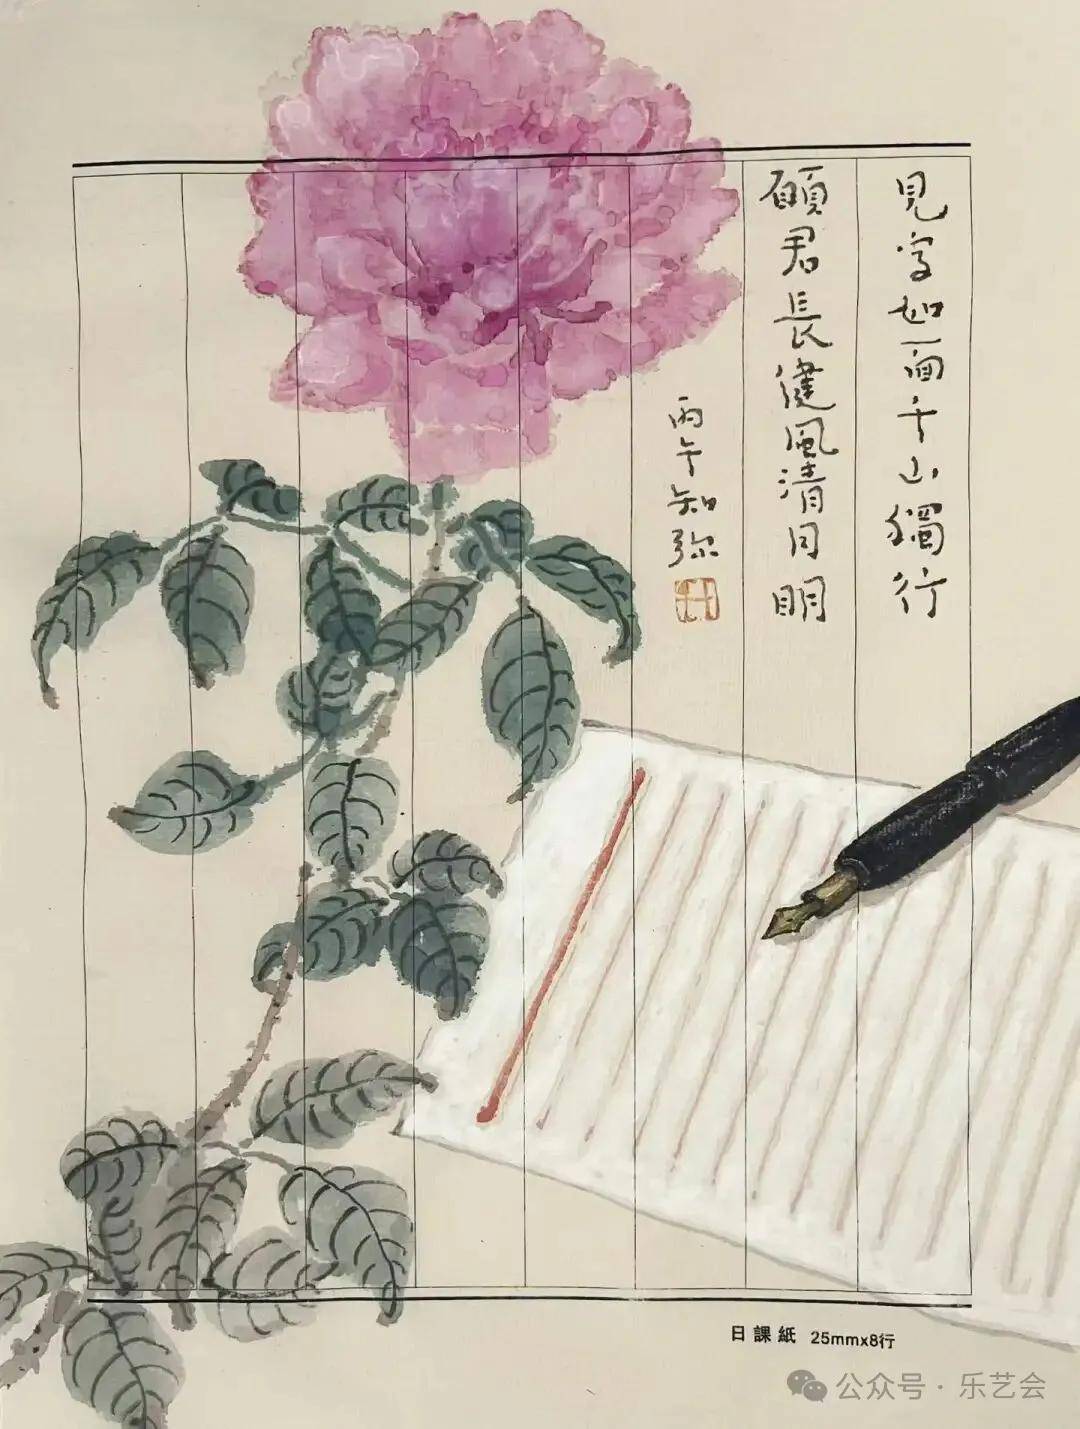 見字如面千山獨行
願君長健風清月明
丙午知弥
日課紙 25mmx8行
公众号·乐艺会